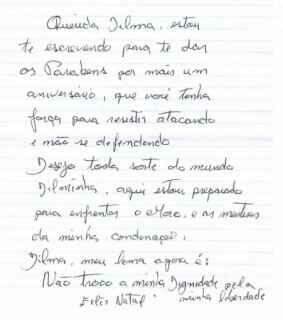 Querida Dilma, estou
te escrevendo para te dar
os Parabens por mais um
aniversário, que você tenha
força para resistir atacando
e não se defendendo
Desejo toda sorte do mundo
Dilminha, aqui estou preparado
para enfrentar o e as
da minha condenação.
Dilma, meu lema agora é:
Não troco a minha Dignidade pela
minha liberdade
Feliz Natal